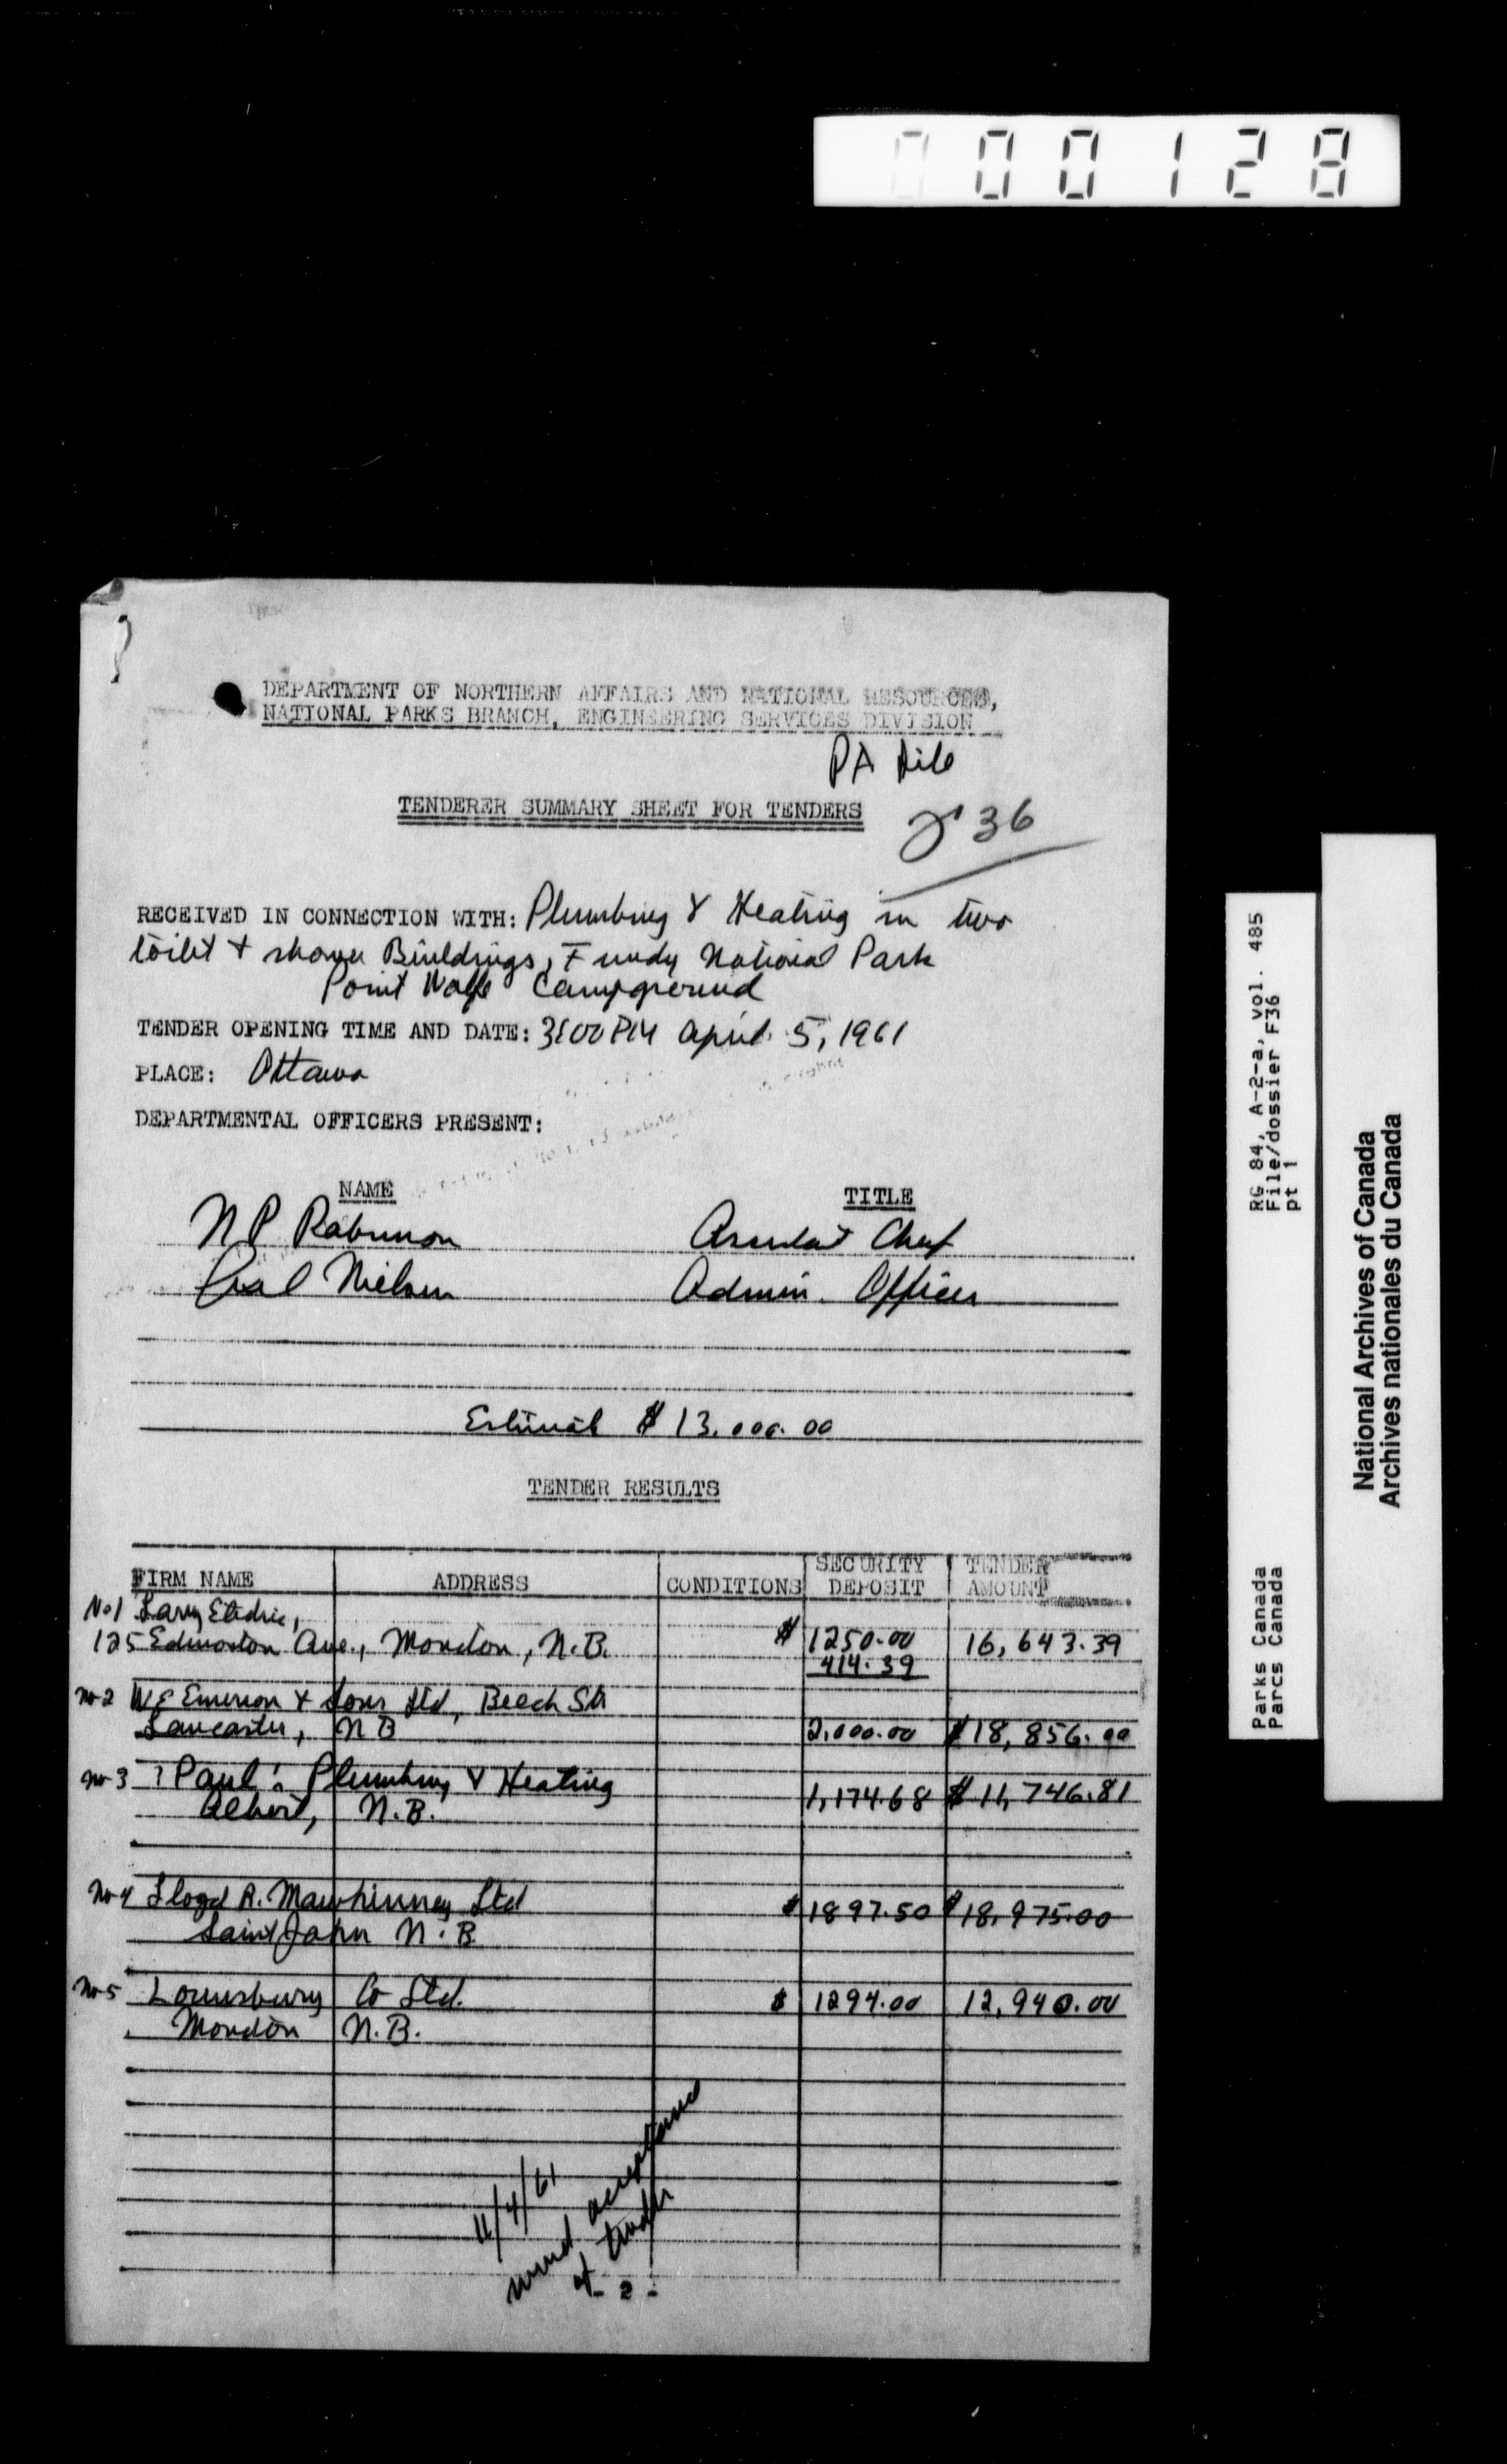 000128
DEPARTMENT OF NORTHERN AFFAIRS AND NATIONAL RESOURCES,
NATIONAL PARKS BRANCH, ENGINEERING SERVICES DIVISION
PA file
TENDERER SUMMARY SHEET FOR TENDERS
36
RECEIVED IN CONNECTION WITH: Plumbing & Heating in two
toilet + shower Buildings, Fundy National Park
Point Wolfe Campground
TENDER OPENING TIME AND DATE: 3:00 PM April 5, 1961
PLACE: Ottawa
DEPARTMENTAL OFFICERS PRESENT:
NAME TITLE
N P Robinson Assistant Chief
Nielsen Admin. Officer
Estimate $ 13,000.00
TENDER RESULTS
FIRM NAME ADDRESS CONDITIONS SECURITY DEPOSIT TENDER AMOUNT
No 1 Larry Electric,
125 Edmonton Ave., Moncton, N.B. $ 1250.00 16,643.39
414.39
No 2 W E Emerson & Sons Ltd, Beech St
Lancaster, N B 2,000.00 $18,856.00
No 3 Paul's Plumbing & Heating
Albert, N.B. 1,174.68 $ 11,746.81
No 4 Lloyd R. Mawhinney Ltd $ 1897.50 $18,975.00
Saint John N.B.
No 5 Lounsbury Co Ltd. $ 1294.00 12,940.00
Moncton N.B.
11/4/61
acceptance
of tender
- 2 -
RG 84, A-2-a, vol. 485
File/dossier F36
pt 1
Parks Canada
Parcs Canada
National Archives of Canada
Archives nationales du Canada